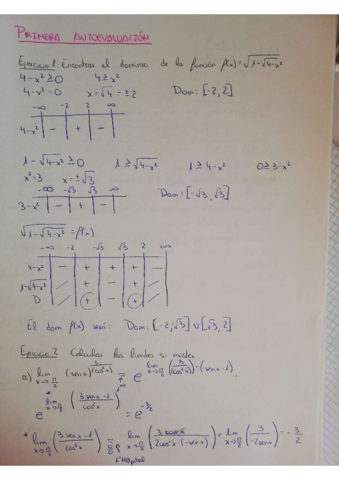 PRIMERA AUTOEVALUACIÓN
Ejercicio 1 Encontrar el dominio de la función f(x)=√(1-√(4-x²))
4-x²≥0 4≥x²
4-x²=0 x=√4=±2 Dom: [-2,2]
-∞ -2 2 ∞
4-x² - + -
1-√(4-x²)≥0 1≥√(4-x²) 1≥4-x² 0≥3-x²
x²=3 x=±√3
-∞ -√3 √3 ∞ Dom: [-√3,√3]
3-x² - + -
√(1-√(4-x²))=f(x)
-∞ -2 -√3 √3 2 -∞
4-x² - + + + -
1-√(4-x²) + - +
D + - +
El dom f(x) será: Dom: [-2,√3] ∪ [√3,2]
Ejercicio 2 Calcular los límites si existen
a) lim x→π/2 (sen x)^(3/cos²x) = e^(lim x→π/2 (3/cos²x)·(sen x-1))
e^(lim x→π/2 (3 sen x-1/cos²x)) = e^(-3/2)
* lim x→π/2 (3 sen x-1/cos²x) = lim x→π/2 (3 cos x/2cos x·(-sen x)) = lim x→π/2 (3/-2sen x) = -3/2
L'Hôpital